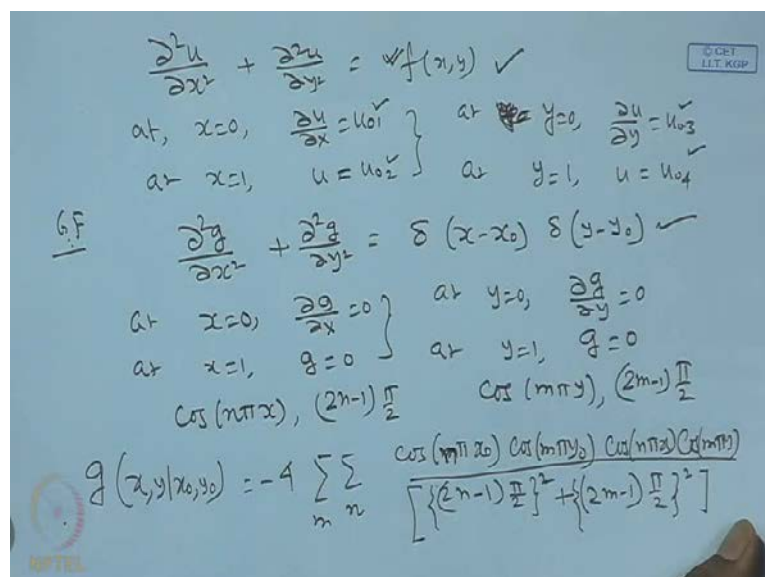 ∂²u/∂x² + ∂²u/∂y² = f(x,y) ✓
© CET
I.I.T. KGP
at, x=0, ∂u/∂x = u01 ✓ } at y=0, ∂u/∂y = u03 ✓
at x=1, u = u02 ✓ at y=1, u = u04 ✓
G.F
∂²g/∂x² + ∂²g/∂y² = δ(x-x0) δ(y-y0) ✓
at x=0, ∂g/∂x = 0 } at y=0, ∂g/∂y = 0
at x=1, g=0 at y=1, g=0
Cos(nπx), (2n-1) π/2 Cos(mπy), (2m-1) π/2
g(x,y|x0,y0) = -4 Σm Σn Cos(nπx0) Cos(mπy0) Cos(nπx) Cos(mπy) / [{(2n-1) π/2}² + {(2m-1) π/2}²]
NPTEL